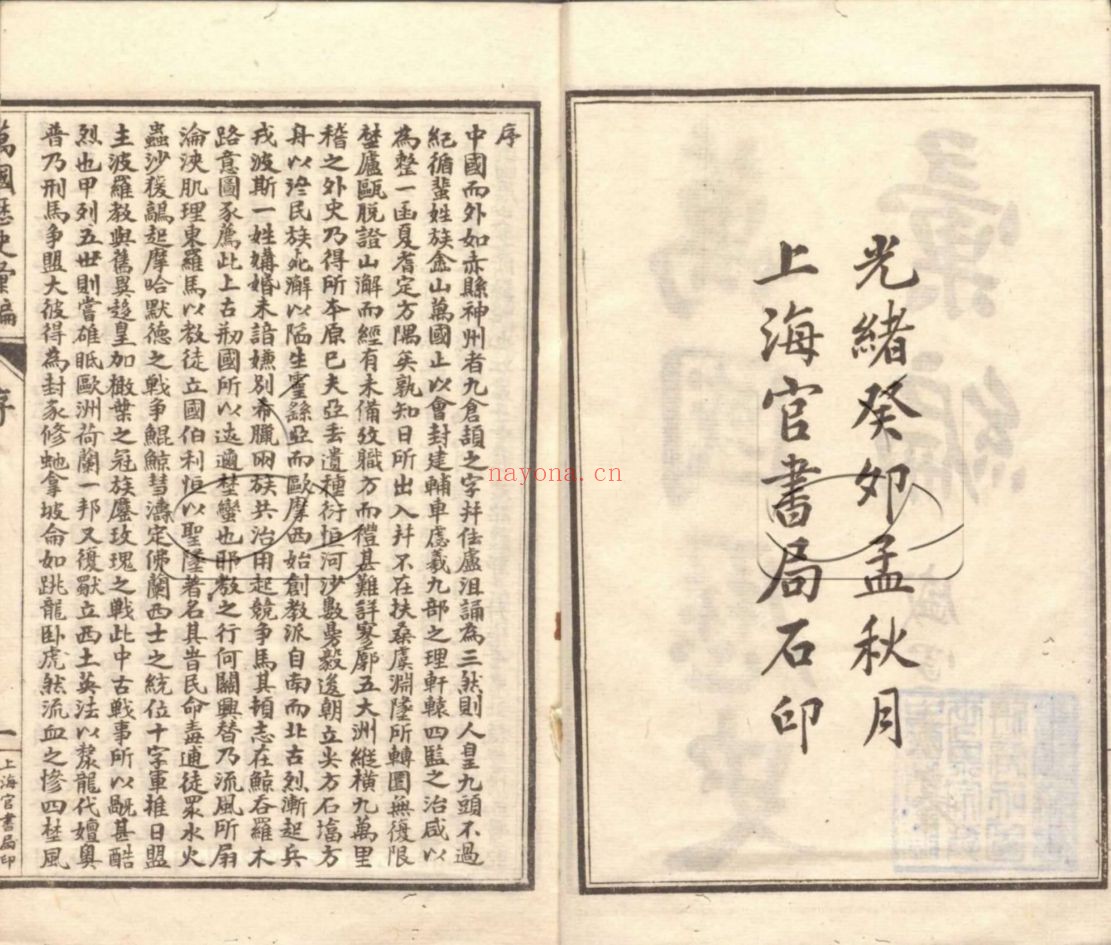 光緒癸卯孟秋月
上海官書局石印
序
中國而外如赤縣神州者九倉頡之字并佉盧沮誦為三然則人皇九頭不過
紀循蜚姓族鑫山萬國止以會封建輔車慮羲九部之理軒轅四監之治咸以
為整一函夏耆定方隅矣孰知日所出入并不在扶桑虞淵墜所轉圜無復限
埜廬甌脫證山澥而經有未備攷職方而禮甚難詳寥廓五大洲縱橫九萬里
稽之外史乃得所本原已夫亞丢遺種衍恒河沙數易毅逡朝立尖方石墖方
舟以濟民族死澥以陷生靈繇亞而歐摩西始創教派自南而北古烈漸起兵
戎波斯一姓媾婚未諳嫌別希臘兩族共治用起競爭馬其頓志在鯨吞羅木
路意圖豕薦此上古剏國所以遠邇埜蠻也耶教之行何關興替乃流風所扇
淪浹肌理東羅馬以教徒立國伯利恒以聖墜著名其眚民命毒逋徒眾水火
蟲沙猨鶴起摩哈默德之戰爭鯤鯨彗濤定佛蘭西士之統位十字軍推日盟
主波羅教與舊異趍皇加橄葉之冠族鏖玫瑰之戰此中古戰事所以翫甚酷
烈也甲列五世則嘗雄眂歐洲荷蘭一邦又復嶽立西土英法以漦龍代嬗奥
普乃刑馬爭盟大彼得為封豕修虵拿坡侖如跳龍卧虎然流血之慘四埜風
萬國歷史彙編
序
一
上海官書局印
nayona.cn